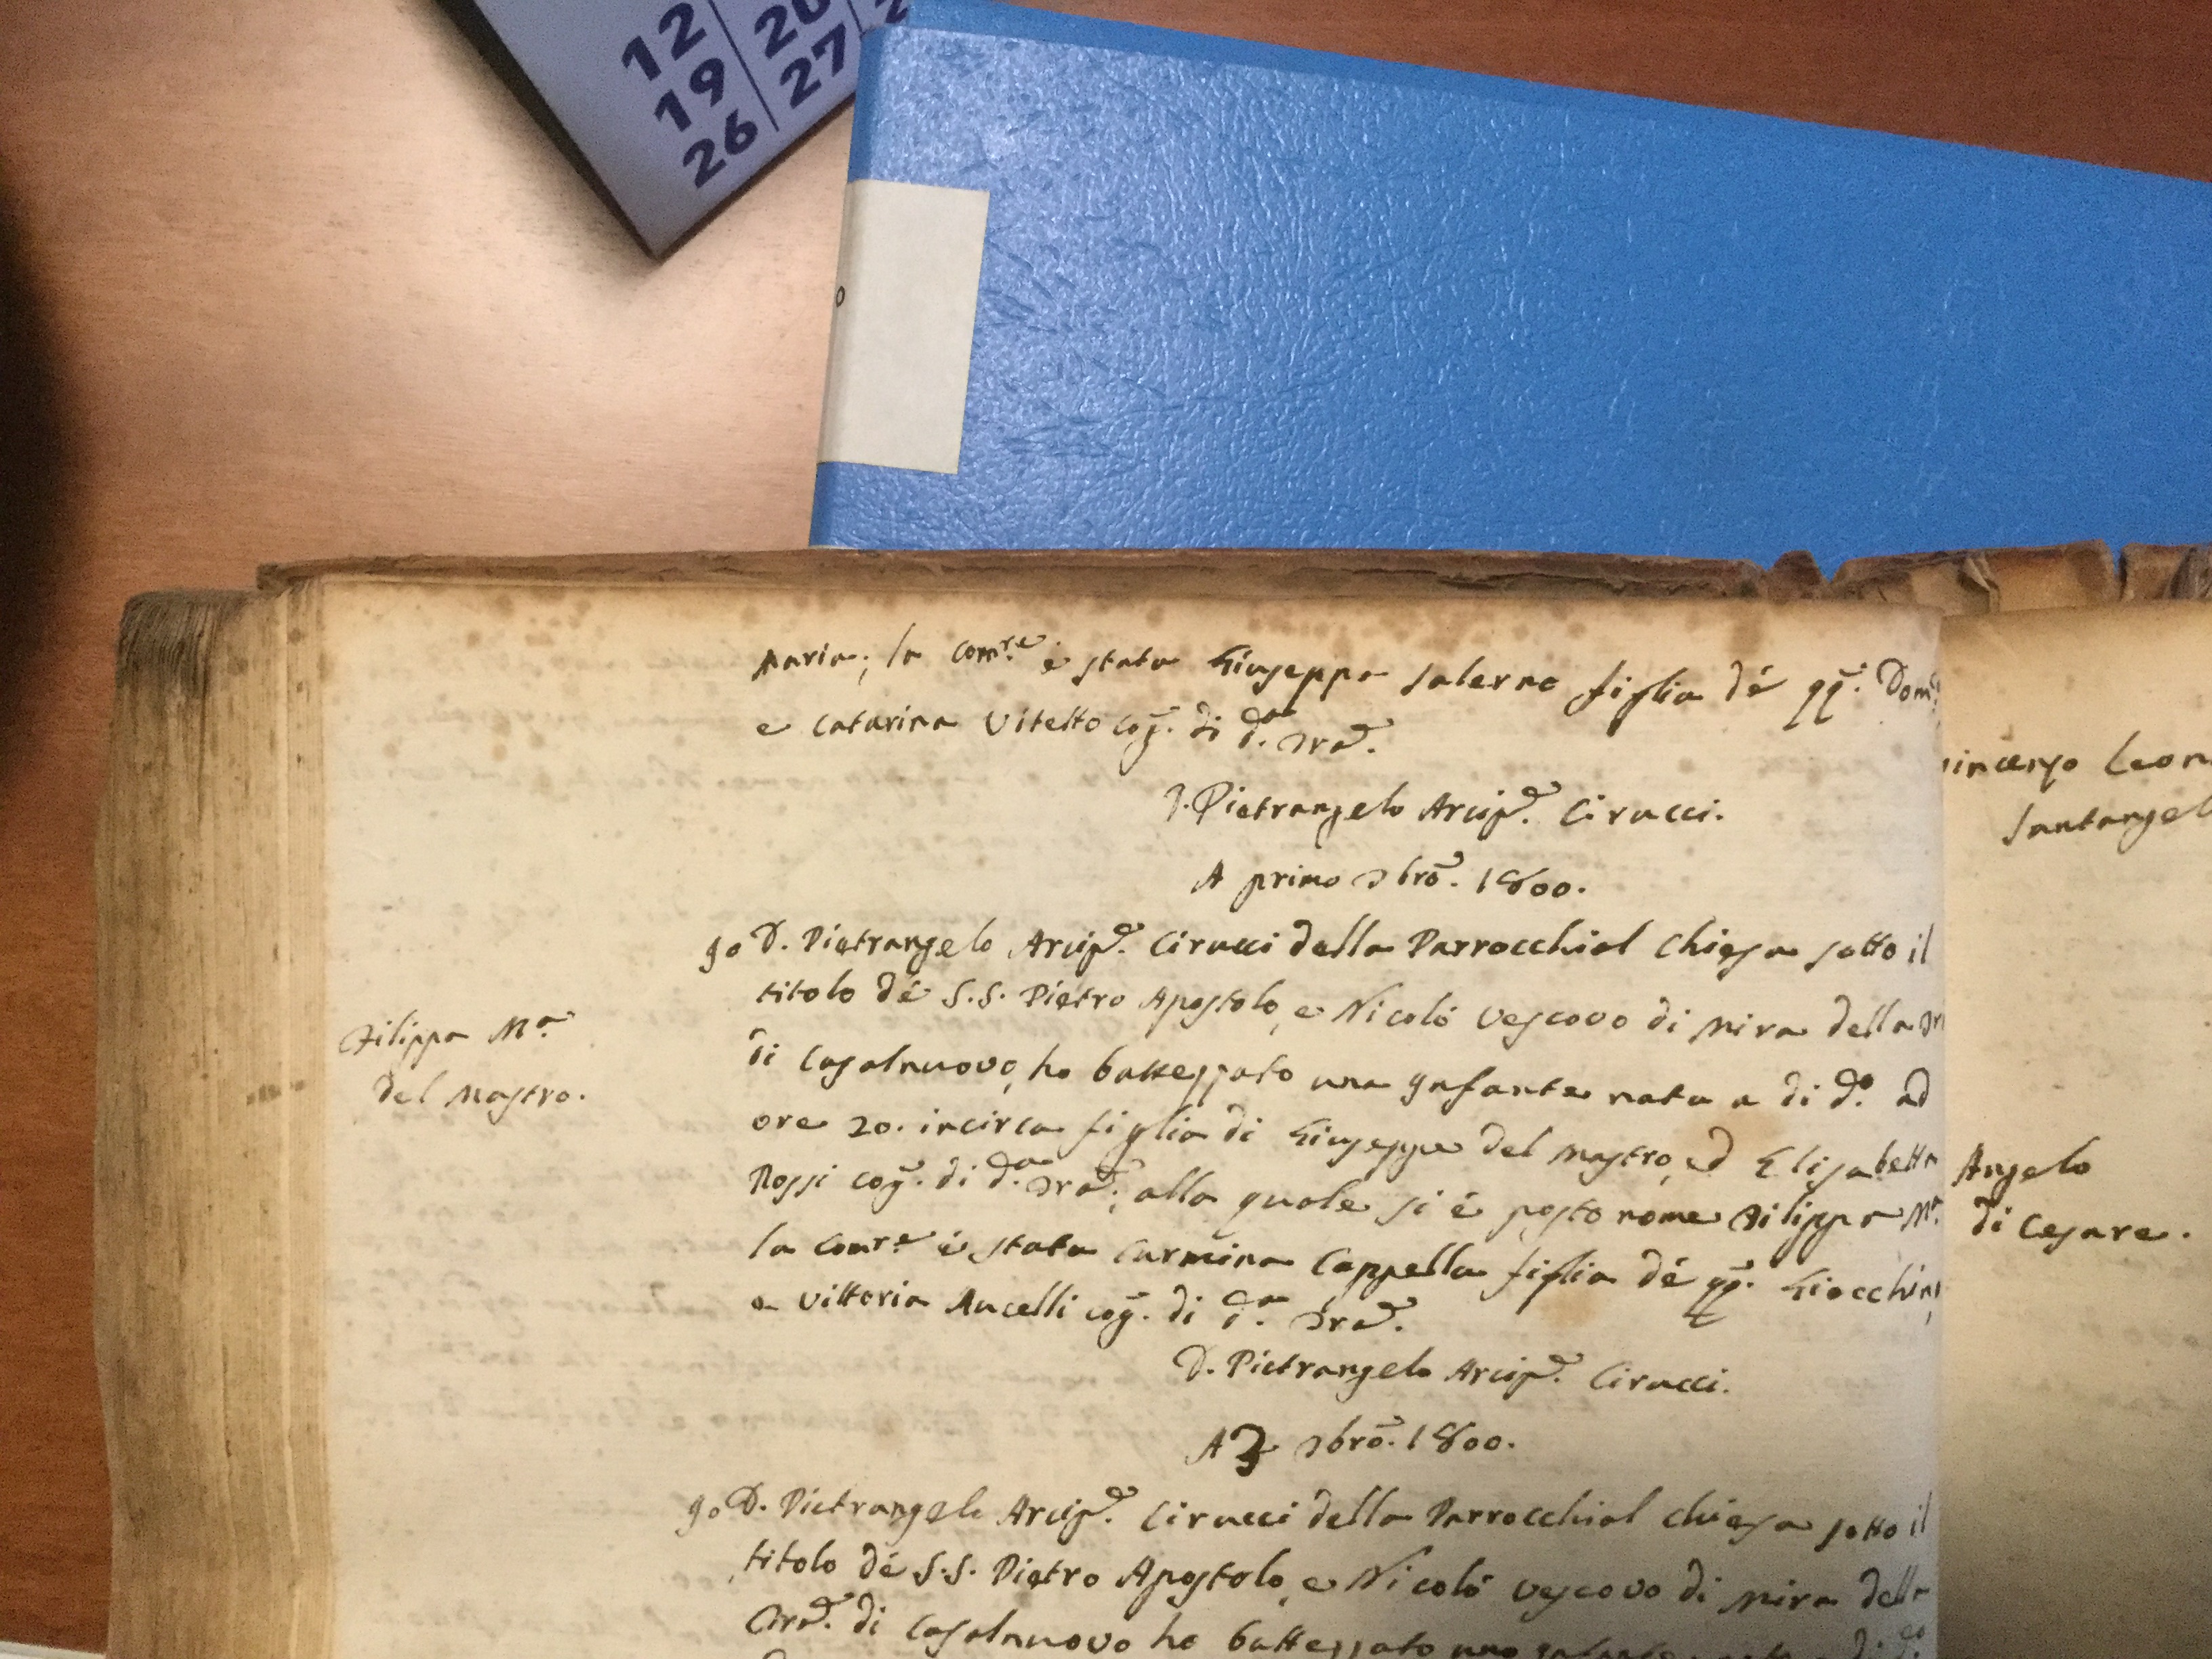 12 20
19 27
26
o
Maria; la Com.re è stata Giuseppa Salerno figlia dé qq. Dom.
e Catarina Vitetto cog. di d.a Tra.
D. Pietrangelo Arcip.e Cirucci.
A primo 9bro. 1800.
Io D. Pietrangelo Arcip.e Cirucci della Parrocchial Chiesa sotto il
titolo dé S.S. Pietro Apostolo, e Nicolò Vescovo di Mira della
Filippa M.a
del Mastro.
di Casalnuovo, ho battezzato una Infante nata a di d.o ad
ore 20. incirca figlia di Giuseppe del Mastro, ed Elisabetta
Rossi cog. di d.a Tra.; alla quale si è posto nome Filippa M.a
la Com.re è stata Carmina Cappella figlia dé qq. Giocchino
e Vittoria Aucelli cog. di d.a Tra.
D. Pietrangelo Arcip.e Cirucci.
A 3 9bro. 1800.
Io D. Pietrangelo Arcip.e Cirucci della Parrocchial Chiesa sotto il
titolo dé S.S. Pietro Apostolo, e Nicolò Vescovo di Mira della
Tra. di Casalnuovo ho battezzato
Leon
Santangel
Angelo
di Cesare.